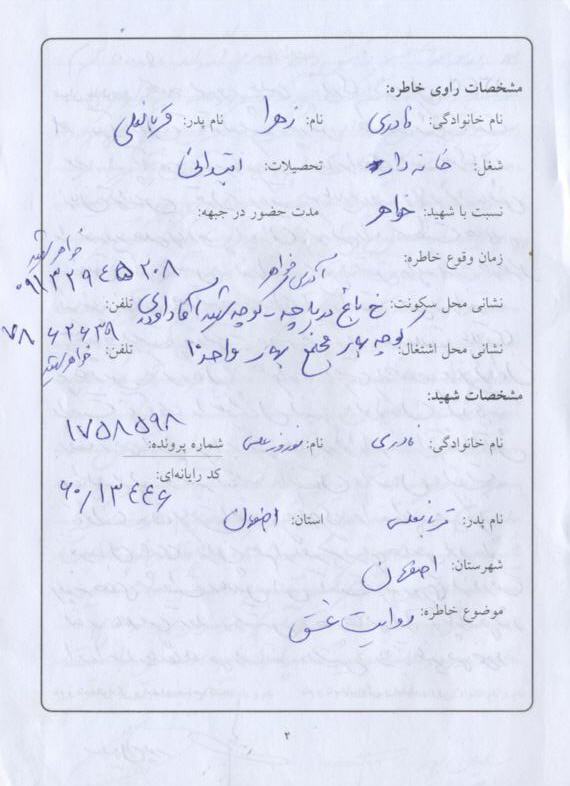 مشخصات راوی خاطره:
نام خانوادگی: نادری نام: زهرا نام پدر: قربانعلی
شغل: خانه دار تحصیلات: ابتدائی
نسبت با شهید: خواهر مدت حضور در جبهه:
خواهر شهید
زمان وقوع خاطره:
آدرس خواهر ۰۹۱۳۲۹۴۵۲۰۸
نشانی محل سکونت: خ باغ دریاچه - کوچه شهید آقاداودی تلفن:
کوچه بهار مجتمع بهار واحد ۱۰ ۷۸۶۲۶۳۹
نشانی محل اشتغال: تلفن: خواهر شهید
مشخصات شهید:
۱۷۵۸۵۹۸
نام خانوادگی: نادری نام: نوروزعلی شماره پرونده:
کد رایانه‌ای:
۶۰/۱۳۴۴۶
نام پدر: قربانعلی استان: اصفهان
شهرستان: اصفهان
موضوع خاطره: روایت عشق
۲